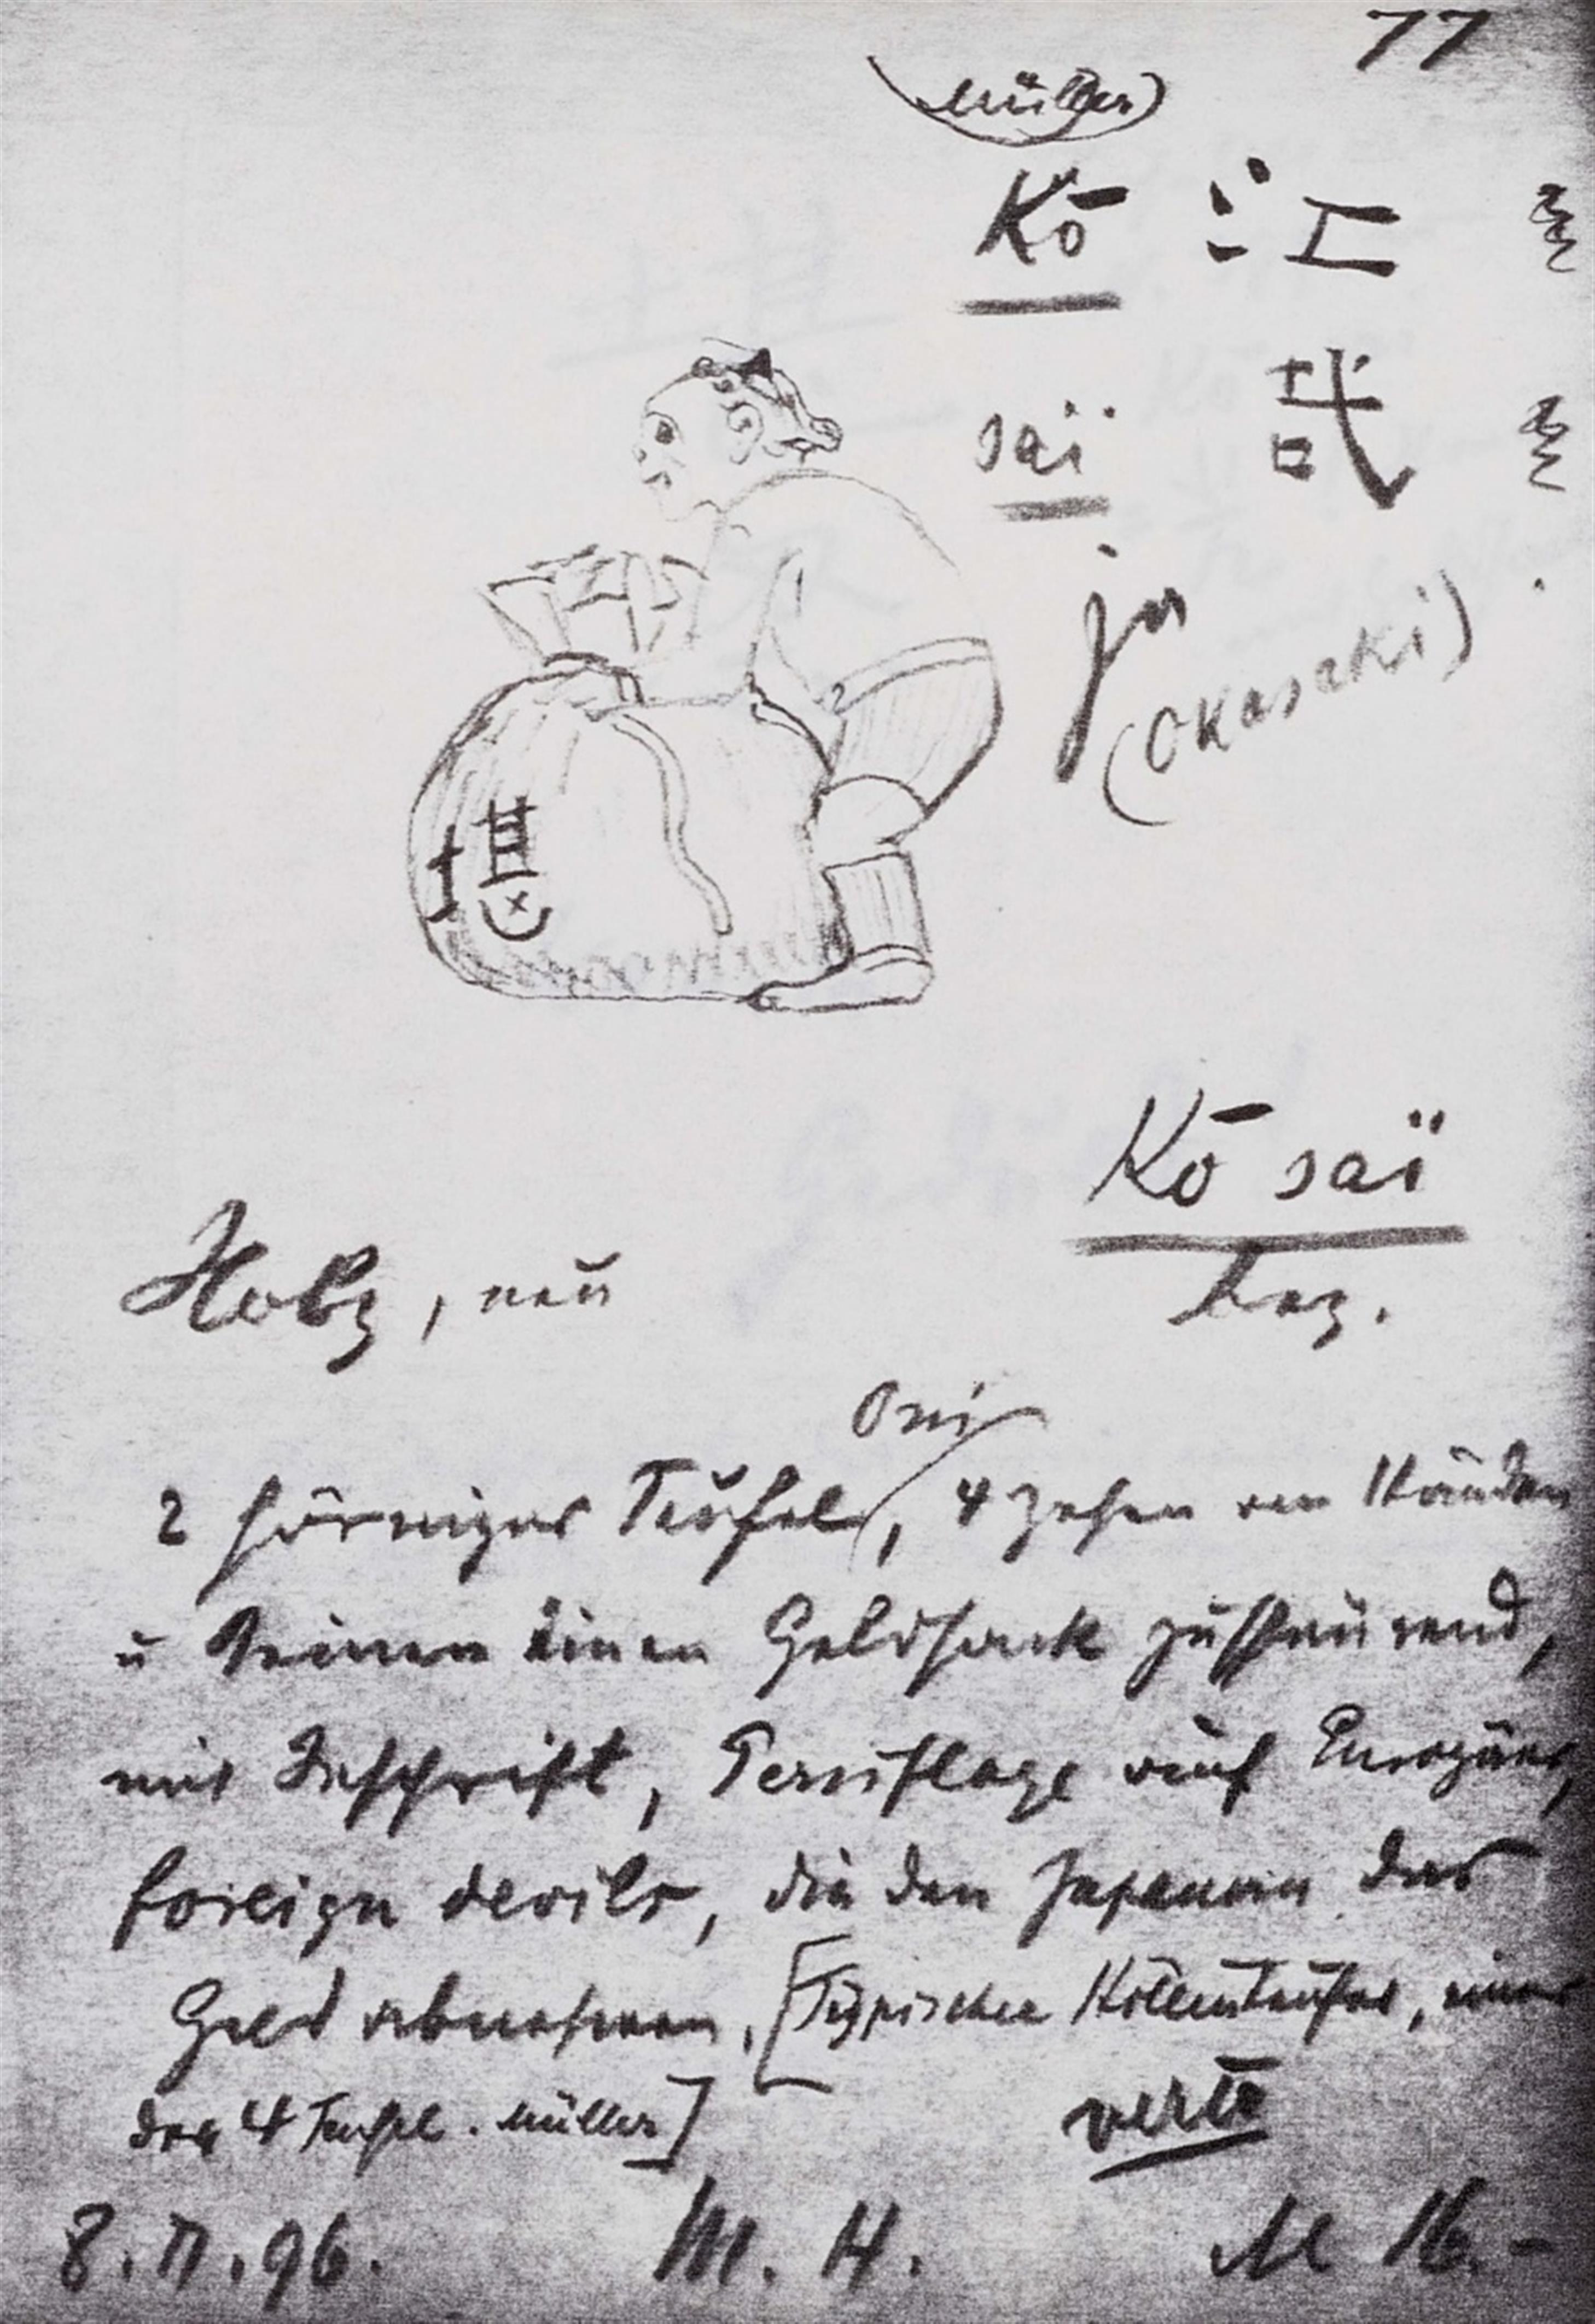 77
(Müller)
Kō 江
saï 哉
ju
(Okasaki)
堪
Kō saï
bez.
Holz, neu
Oni
2 hörniger Teufel, 4 Zehen an Händen
u Beinen einen Geldsack zuschnürend,
mit Inschrift, Persiflage auf Europäer,
foreign devils, die den Japanern das
Geld abnehmen, [Typischer Höllenteufel, einer
der 4 Teufel. Müller]
verte
8.II.96. M. H. M 16.-